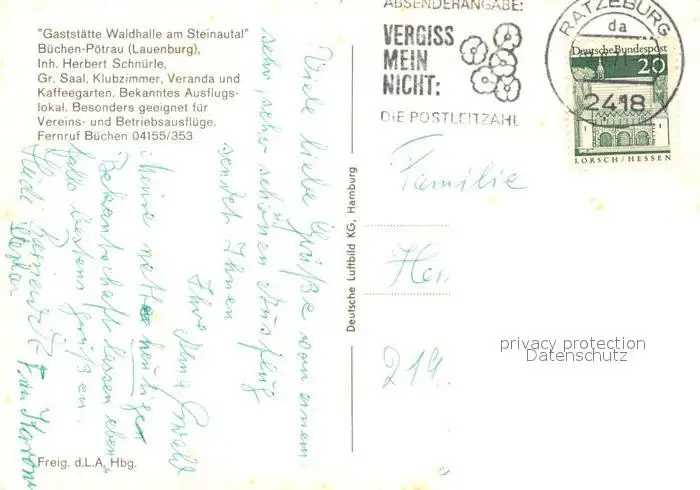 "Gaststätte Waldhalle am Steinautal"
Büchen-Pötrau (Lauenburg),
Inh. Herbert Schnürle,
Gr. Saal, Klubzimmer, Veranda und
Kaffeegarten. Bekanntes Ausflugs-
lokal. Besonders geeignet für
Vereins- und Betriebsausflüge.
Fernruf Büchen 04155/353
Viele liebe Grüße von einem
sehr, sehr schönen Ausflug
sendet Ihnen
Ihre Ewald
Meine netten heutigen
Bekanntschaft lassen eben-
falls bestens grüßen.
Freig. d.L.A. Hbg.
Deutsche Luftbild KG, Hamburg
ABSENDERANGABE:
VERGISS
MEIN
NICHT:
DIE POSTLEITZAHL
RATZEBURG
da
2418
Deutsche Bundespost
20
LORSCH/HESSEN
Familie
219
privacy protection
Datenschutz